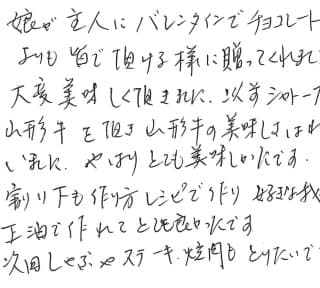 娘が主人にバレンタインでチョコレート
よりも皆で頂ける様に贈ってくれまし
大変美味しく頂きました。以前シャトー
山形牛を頂き山形牛の美味しさはわ
いました。やはりとても美味しかったです。
割り下も作り方レシピで作り 好きな
正油で作れてとても良かったです
次回しゃぶやステーキ、焼肉もとりたいで